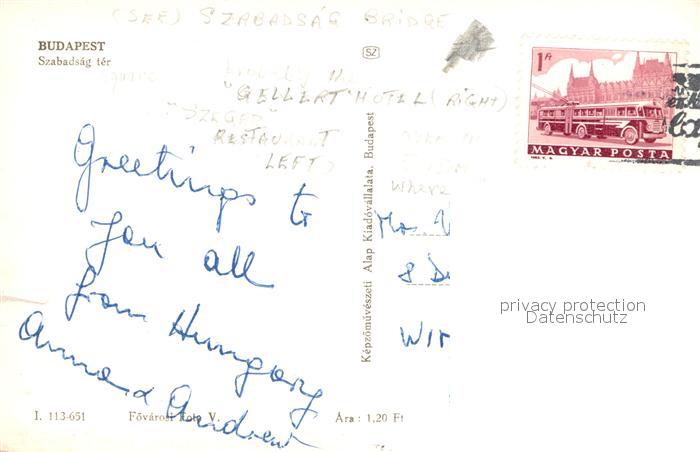 (SEE) SZABADSÁG BRIDGE
BUDAPEST
Szabadság tér
SZ
"GELLERT" HOTEL (RIGHT)
"SZEGED"
RESTAURANT
LEFT)
where
Greetings to
you all
from Hungary
Anna & Andrew
Képzőművészeti Alap Kiadóvállalata, Budapest
1 Ft
MAGYAR POSTA
Mrs
8
privacy protection
Datenschutz
I. 113-651 Fővárosi Foto V. Ára : 1,20 Ft